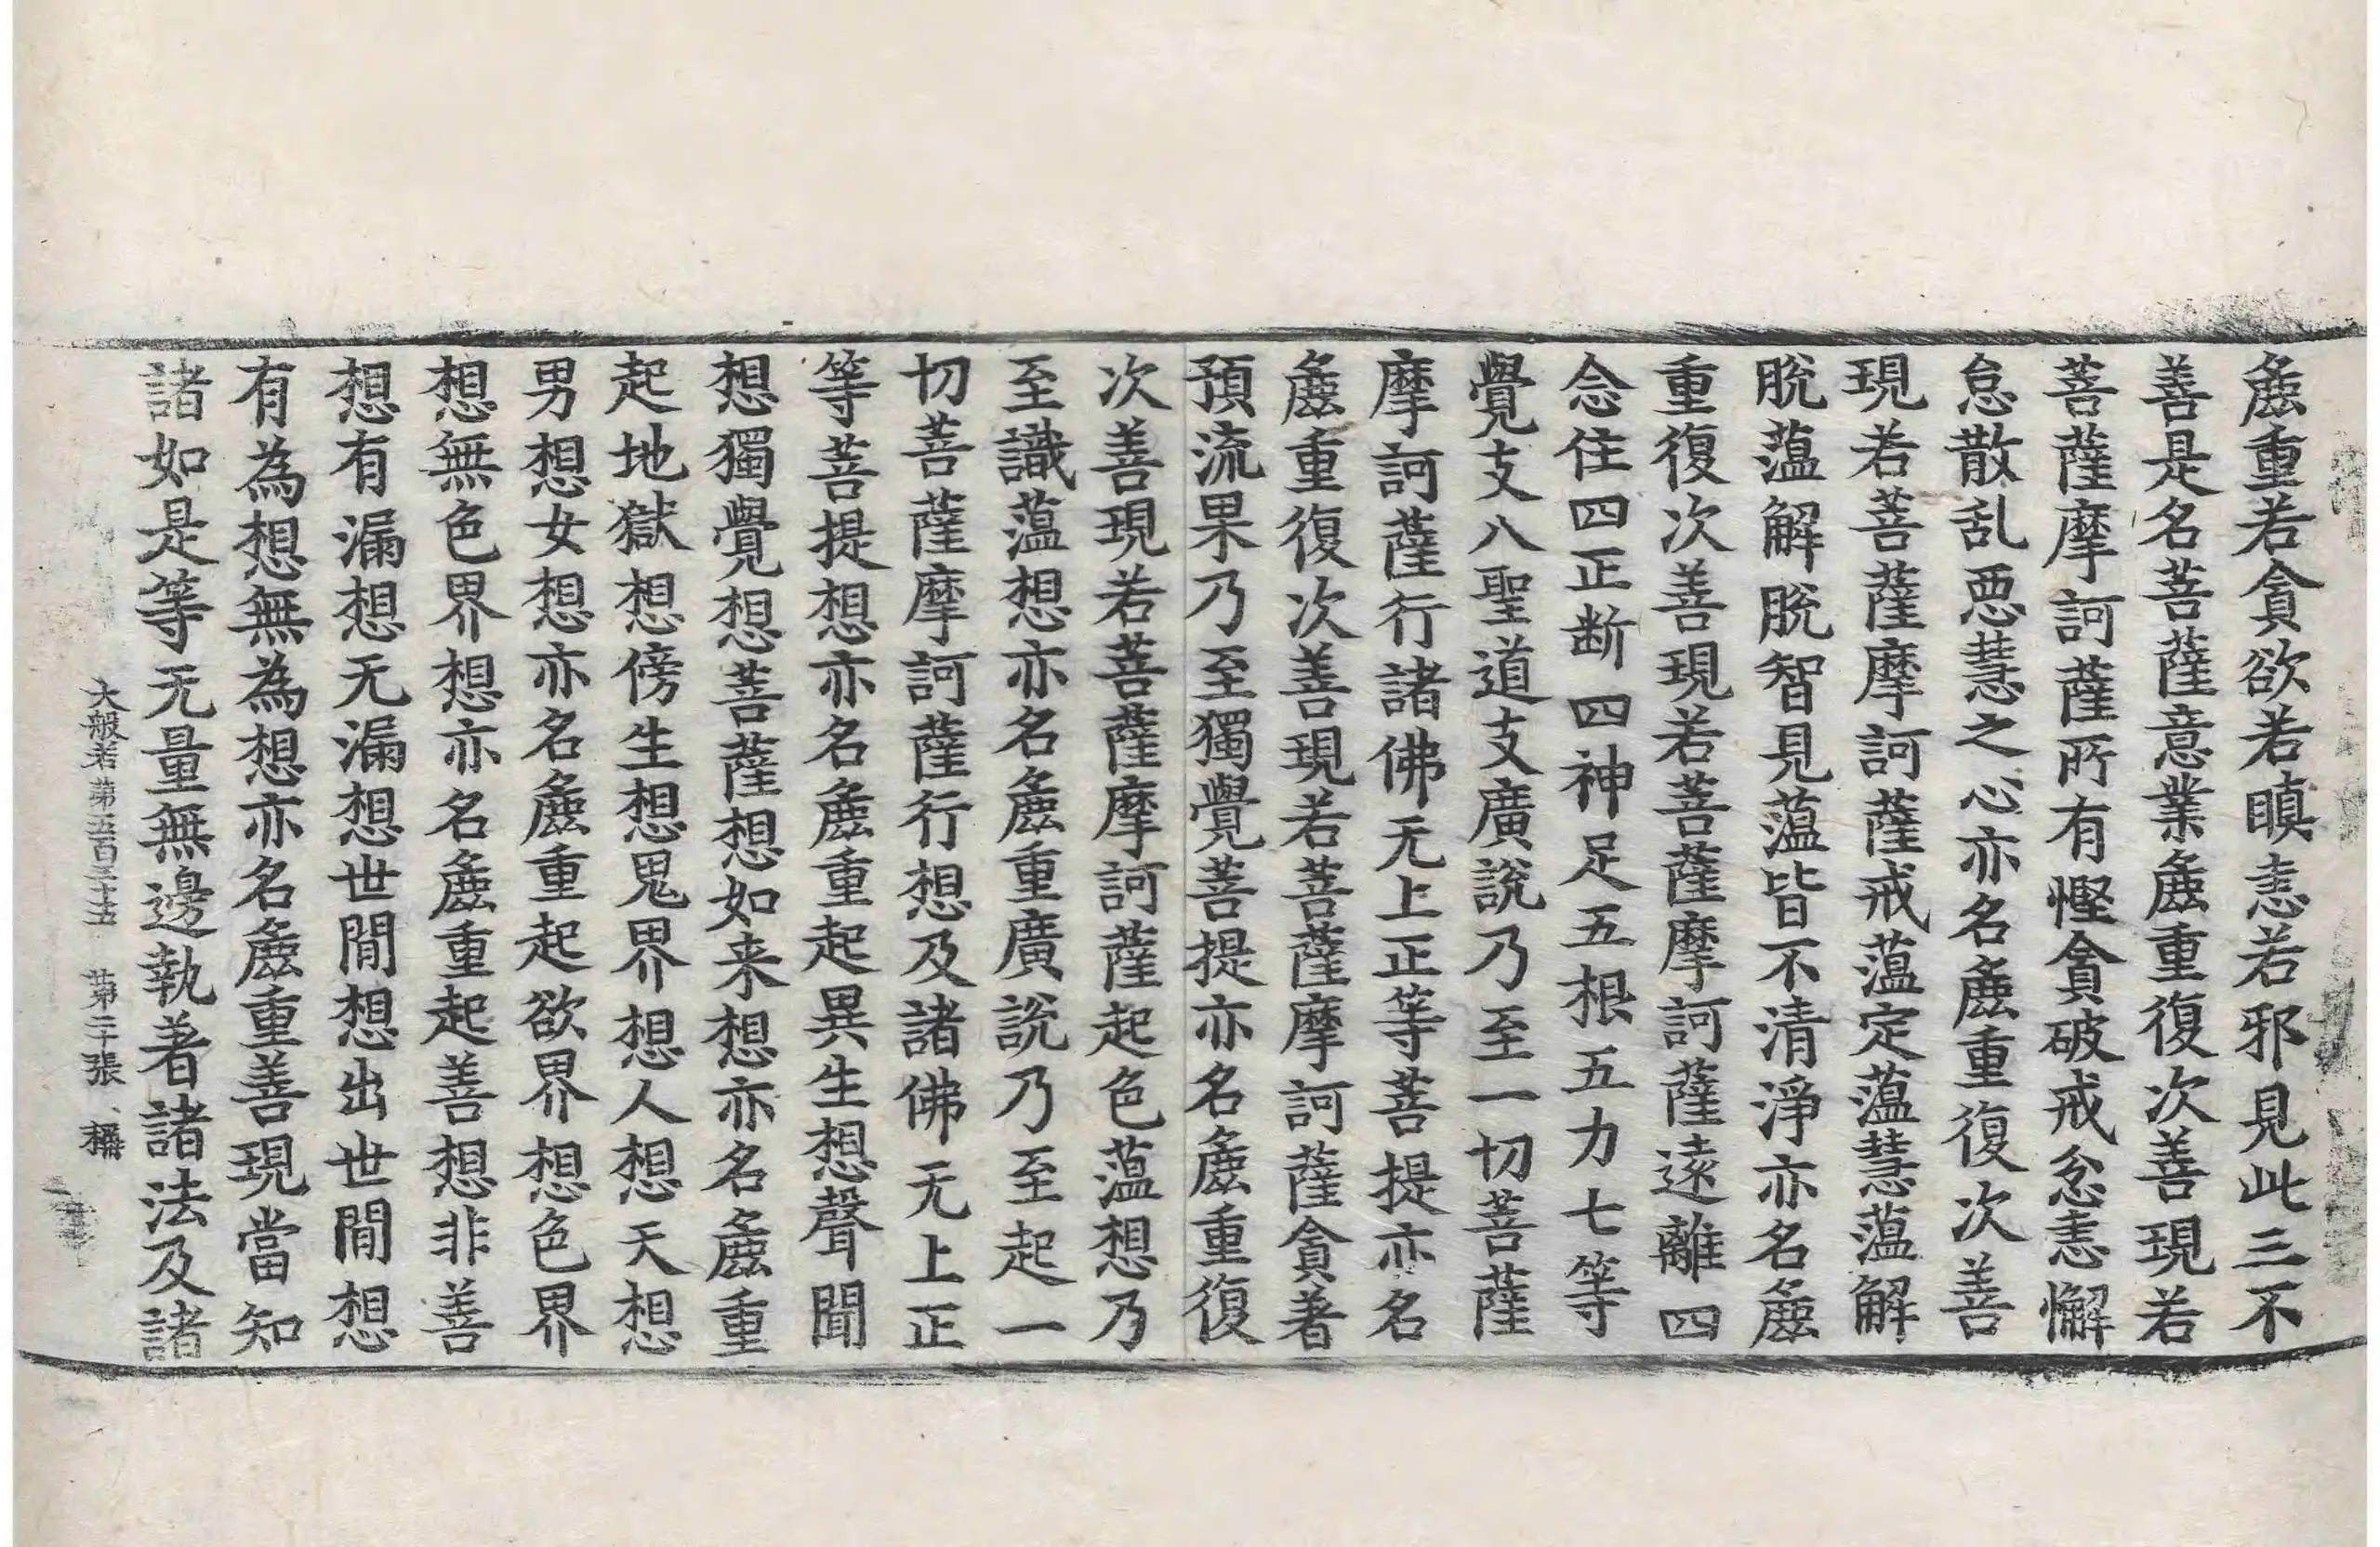 麁重若貪欲若瞋恚若邪見此三不
善是名菩薩意業麁重復次善現若
菩薩摩訶薩所有慳貪破戒忿恚懈
怠散乱悪慧之心亦名麁重復次善
現若菩薩摩訶薩戒蕰定蕰慧蕰解
脫蕰解脫智見蕰皆不清淨亦名麁
重復次善現若菩薩摩訶薩遠離四
念住四正断四神足五根五力七等
覺支八聖道支廣說乃至一切菩薩
摩訶薩行諸佛无上正等菩提亦名
麁重復次善現若菩薩摩訶薩貪著
預流果乃至獨覺菩提亦名麁重復
次善現若菩薩摩訶薩起色蕰想乃
至識蕰想亦名麁重廣說乃至起一
切菩薩摩訶薩行想及諸佛无上正
等菩提想亦名麁重起異生想聲聞
想獨覺想菩薩想如来想亦名麁重
起地獄想傍生想鬼界想人想天想
男想女想亦名麁重起欲界想色界
想無色界想亦名麁重起善想非善
想有漏想无漏想世間想出世間想
有為想無為想亦名麁重善現當知
諸如是等无量無邊執著諸法及諸
大般若第五百三十五 第二十張 稱